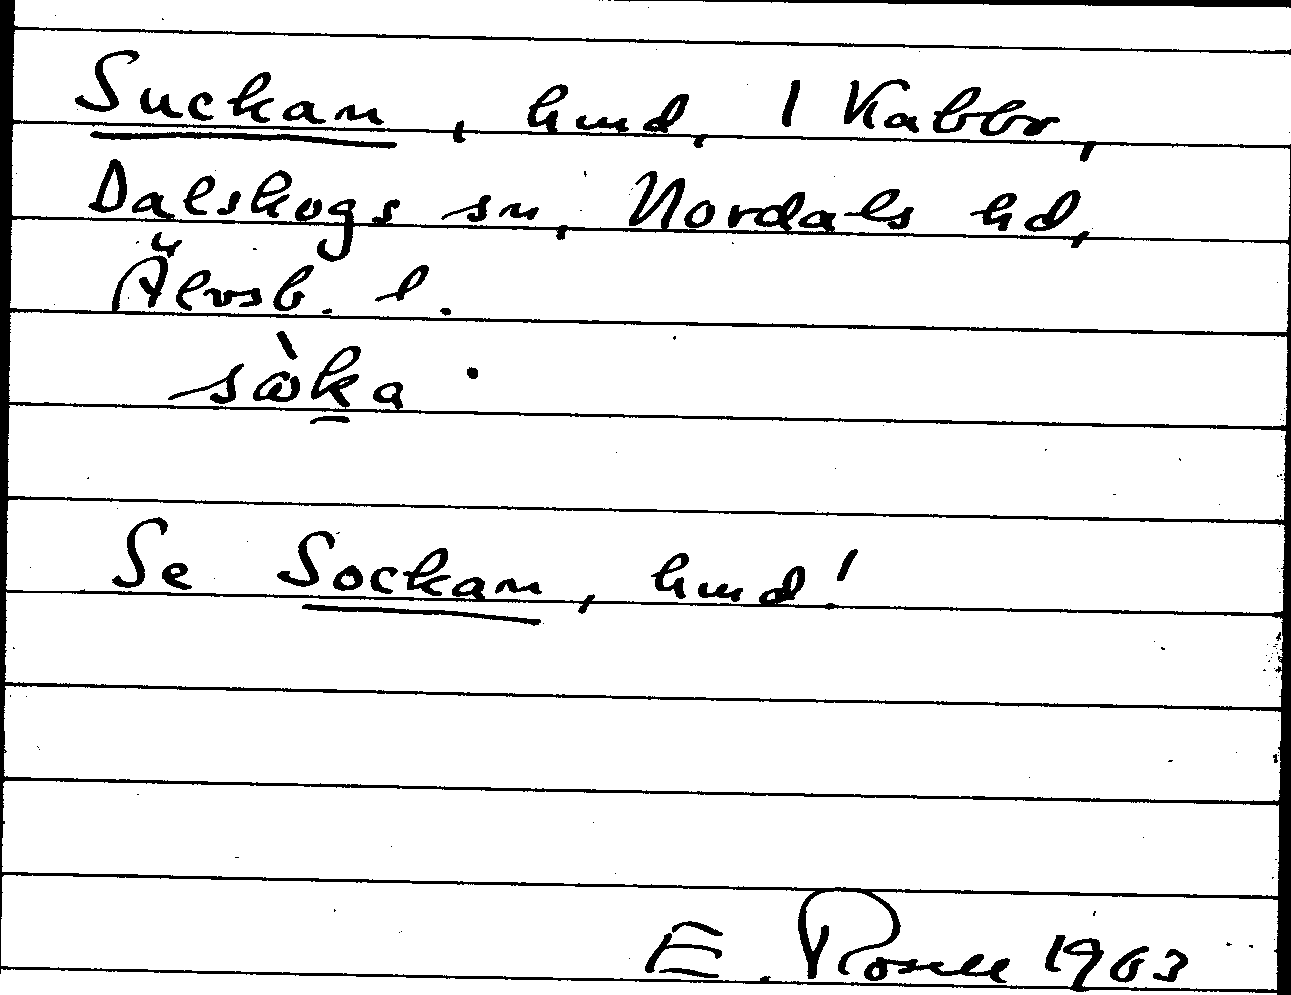 Suckan, hmd, 1 Kabbo,
Dalskogs sn, Nordals hd,
Älvsb. l.
sàka .
Se Sockan, hmd!
E. Rosell 1963